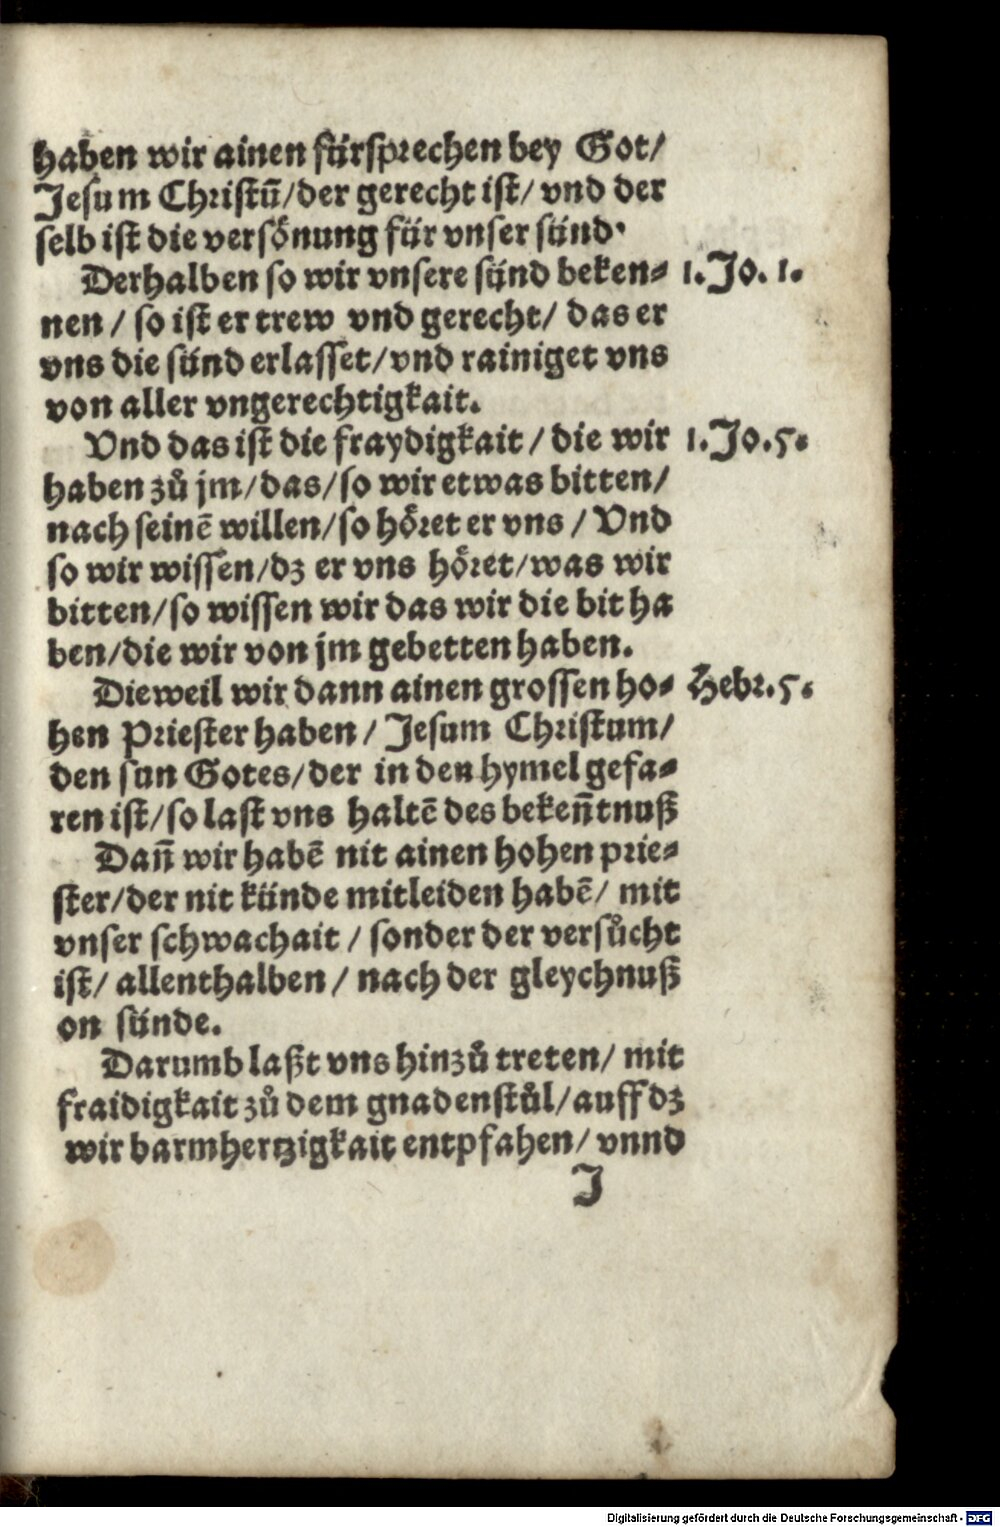 haben wir ainen fürsprechen bey Got/
Jesum Christū/der gerecht ist/ vnd der
selb ist die versönung für vnser sünd.
Derhalben so wir vnsere sünd beken- 1. Jo. 1.
nen / so ist er trew vnd gerecht/ das er
vns die sünd erlasset/vnd rainiget vns
von aller vngerechtigkait.
Vnd das ist die fraydigkait / die wir 1. Jo. 5.
haben zů jm/das/so wir etwas bitten/
nach seinē willen/so höret er vns / Vnd
so wir wissen/dz er vns höret/was wir
bitten/so wissen wir das wir die bit ha
ben/die wir von jm gebetten haben.
Dieweil wir dann ainen grossen ho- Hebr. 5.
hen Priester haben / Jesum Christum/
den sun Gotes/der in den hymel gefa-
ren ist/so last vns haltē des bekeñtnuß
Dañ wir habē nit ainen hohen prie-
ster/der nit künde mitleiden habē/ mit
vnser schwachait / sonder der versůcht
ist/ allenthalben / nach der gleychnuß
on sünde.
Darumb laßt vns hinzů treten/ mit
fraidigkait zů dem gnadenstůl/auff dz
wir barmhertzigkait entpfahen/ vnnd
J
Digitalisierung gefördert durch die Deutsche Forschungsgemeinschaft - DFG